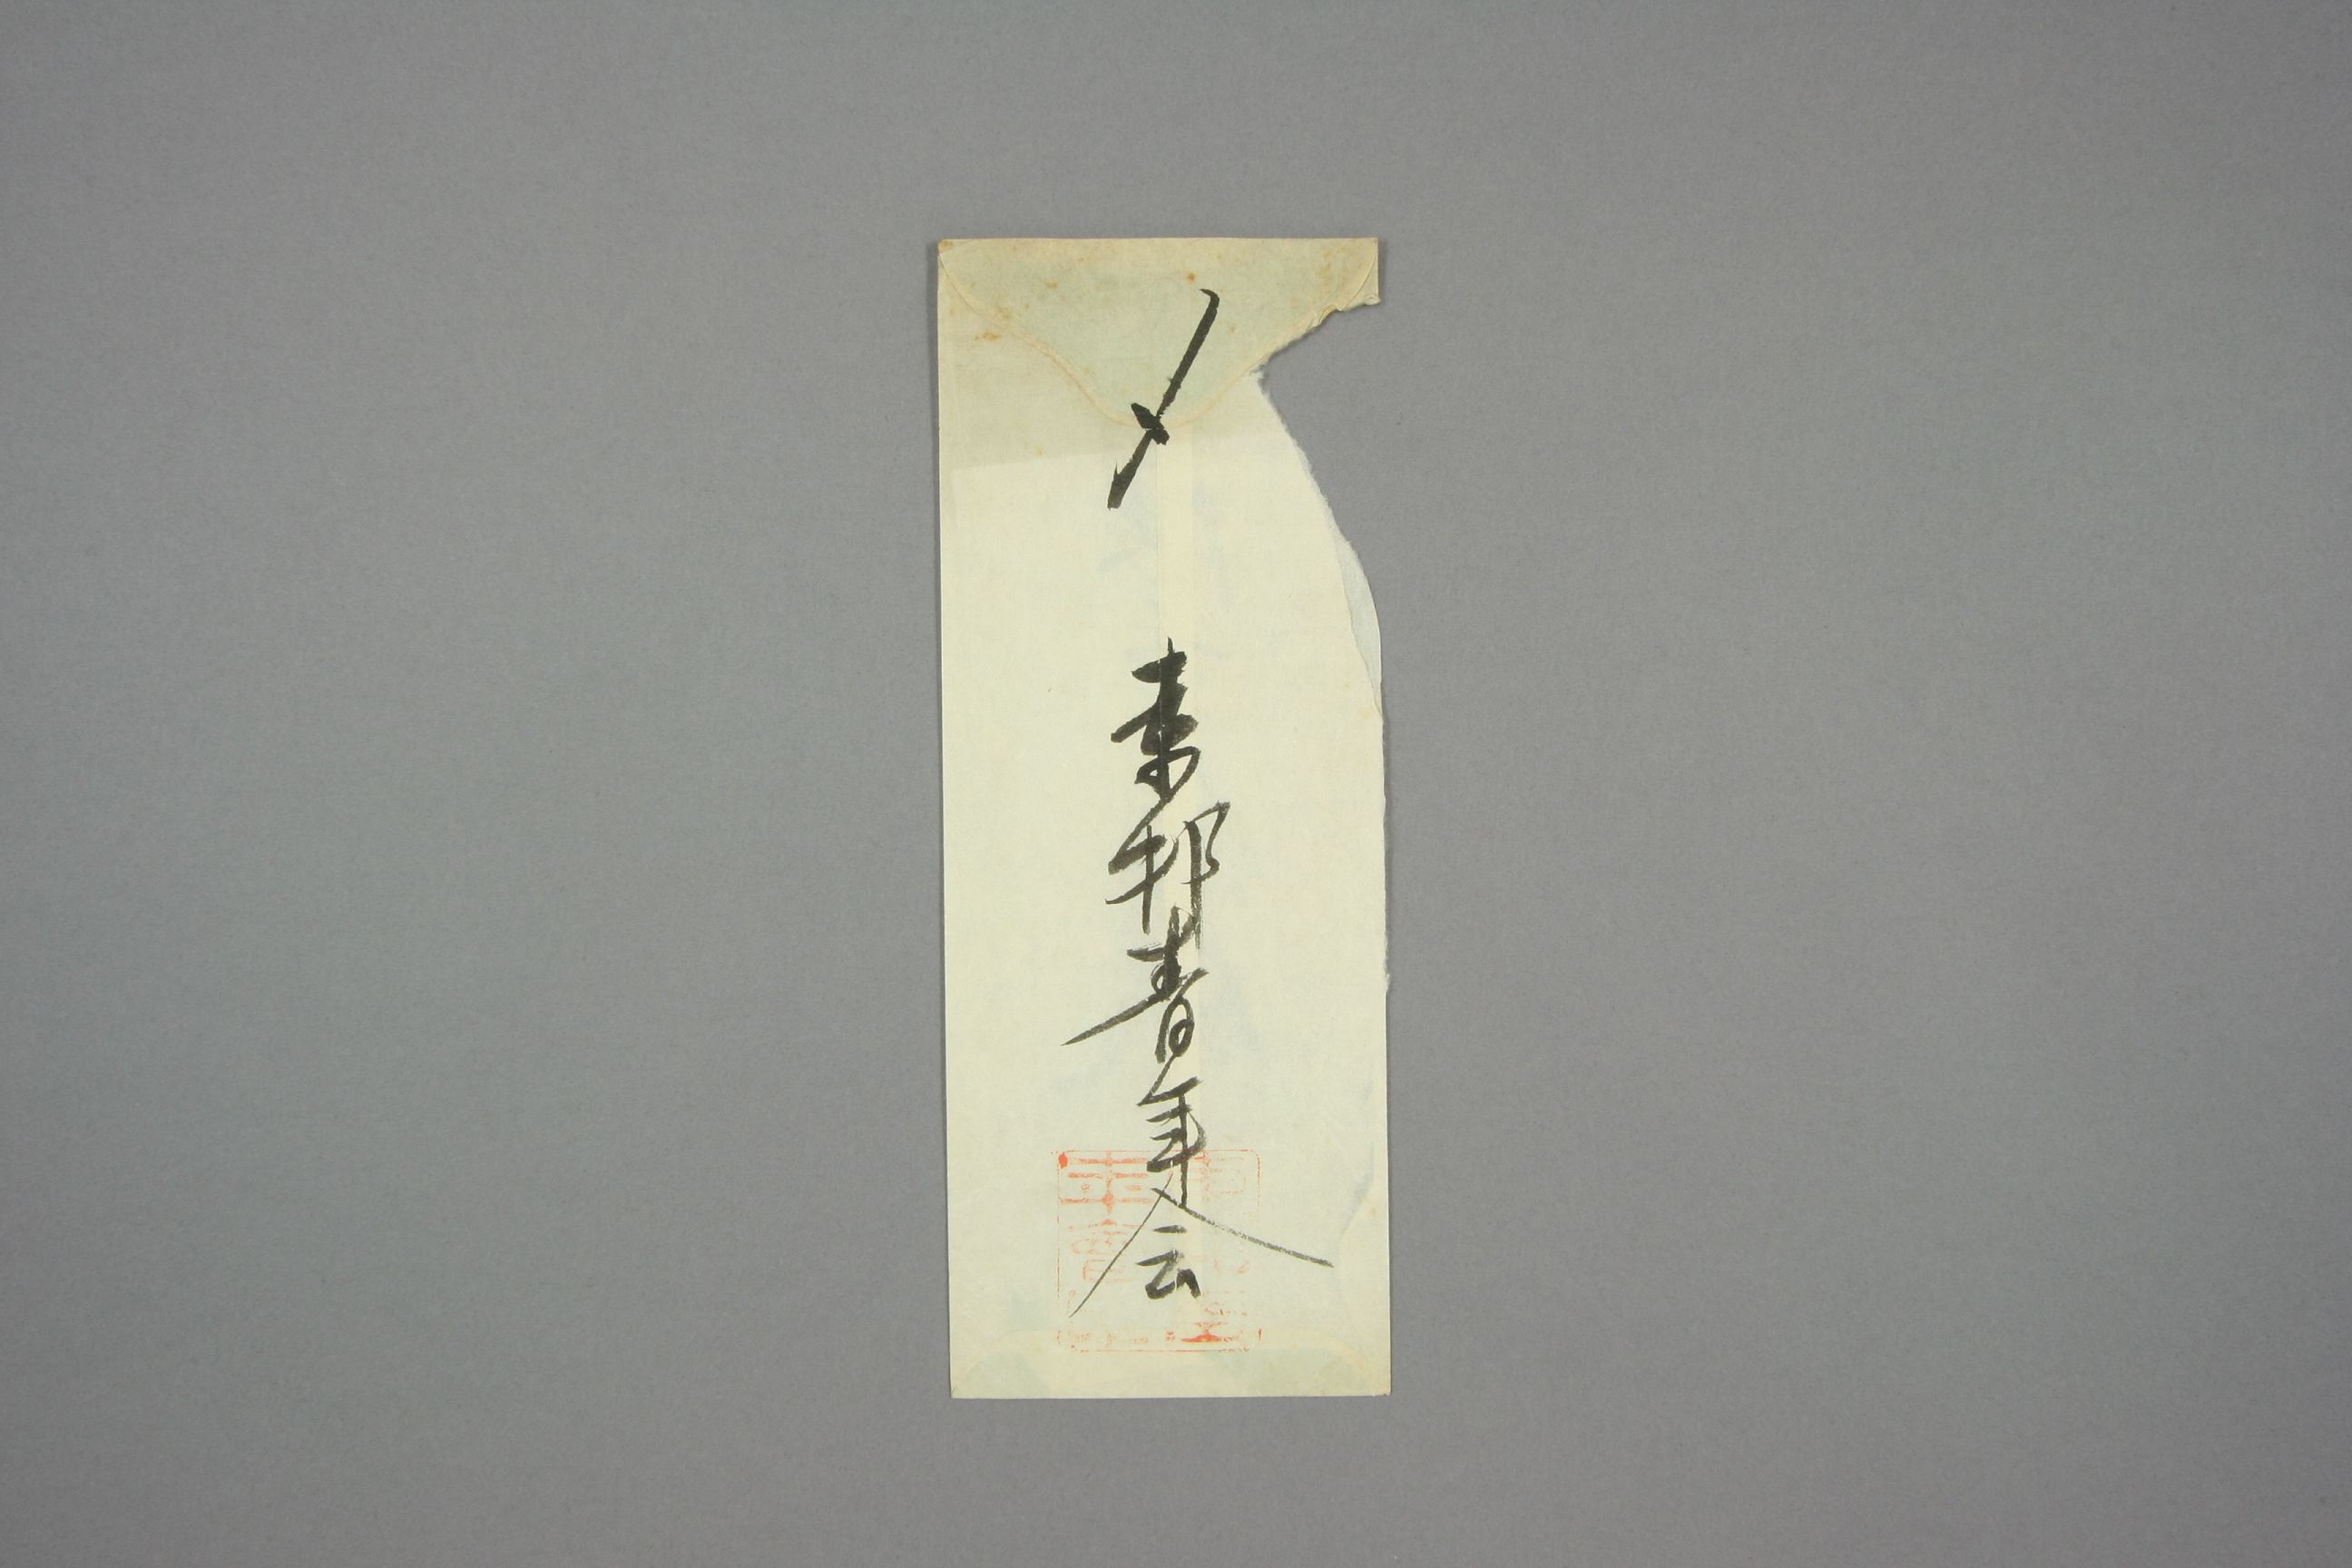 〆
東邦青年会